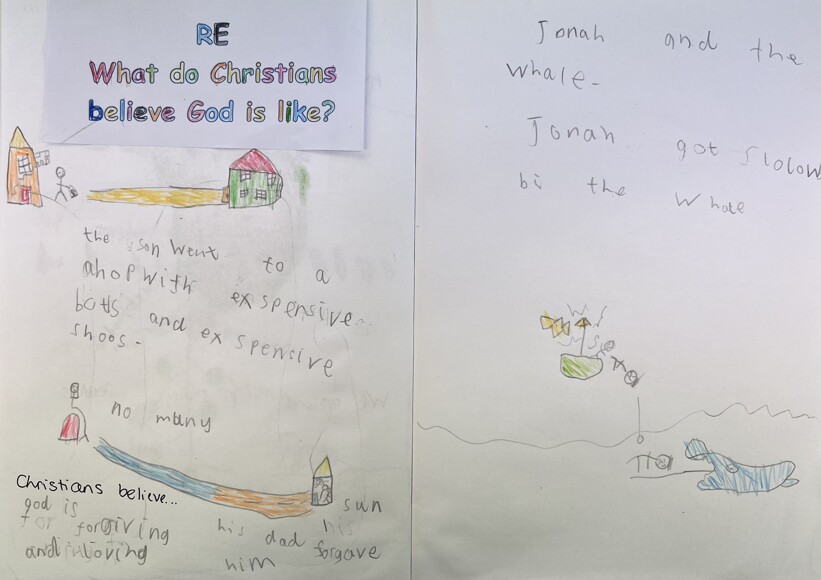 RE
What do Christians
believe God is like?
the son went to a
ahop with exspensive..
botts and exspensive
shoos.
no muny
Christians believe...
god is
for forgiving
and loving
sun
his dad his
forgave
him
Jonah and the
whale.
Jonah got slolow
bi the whale